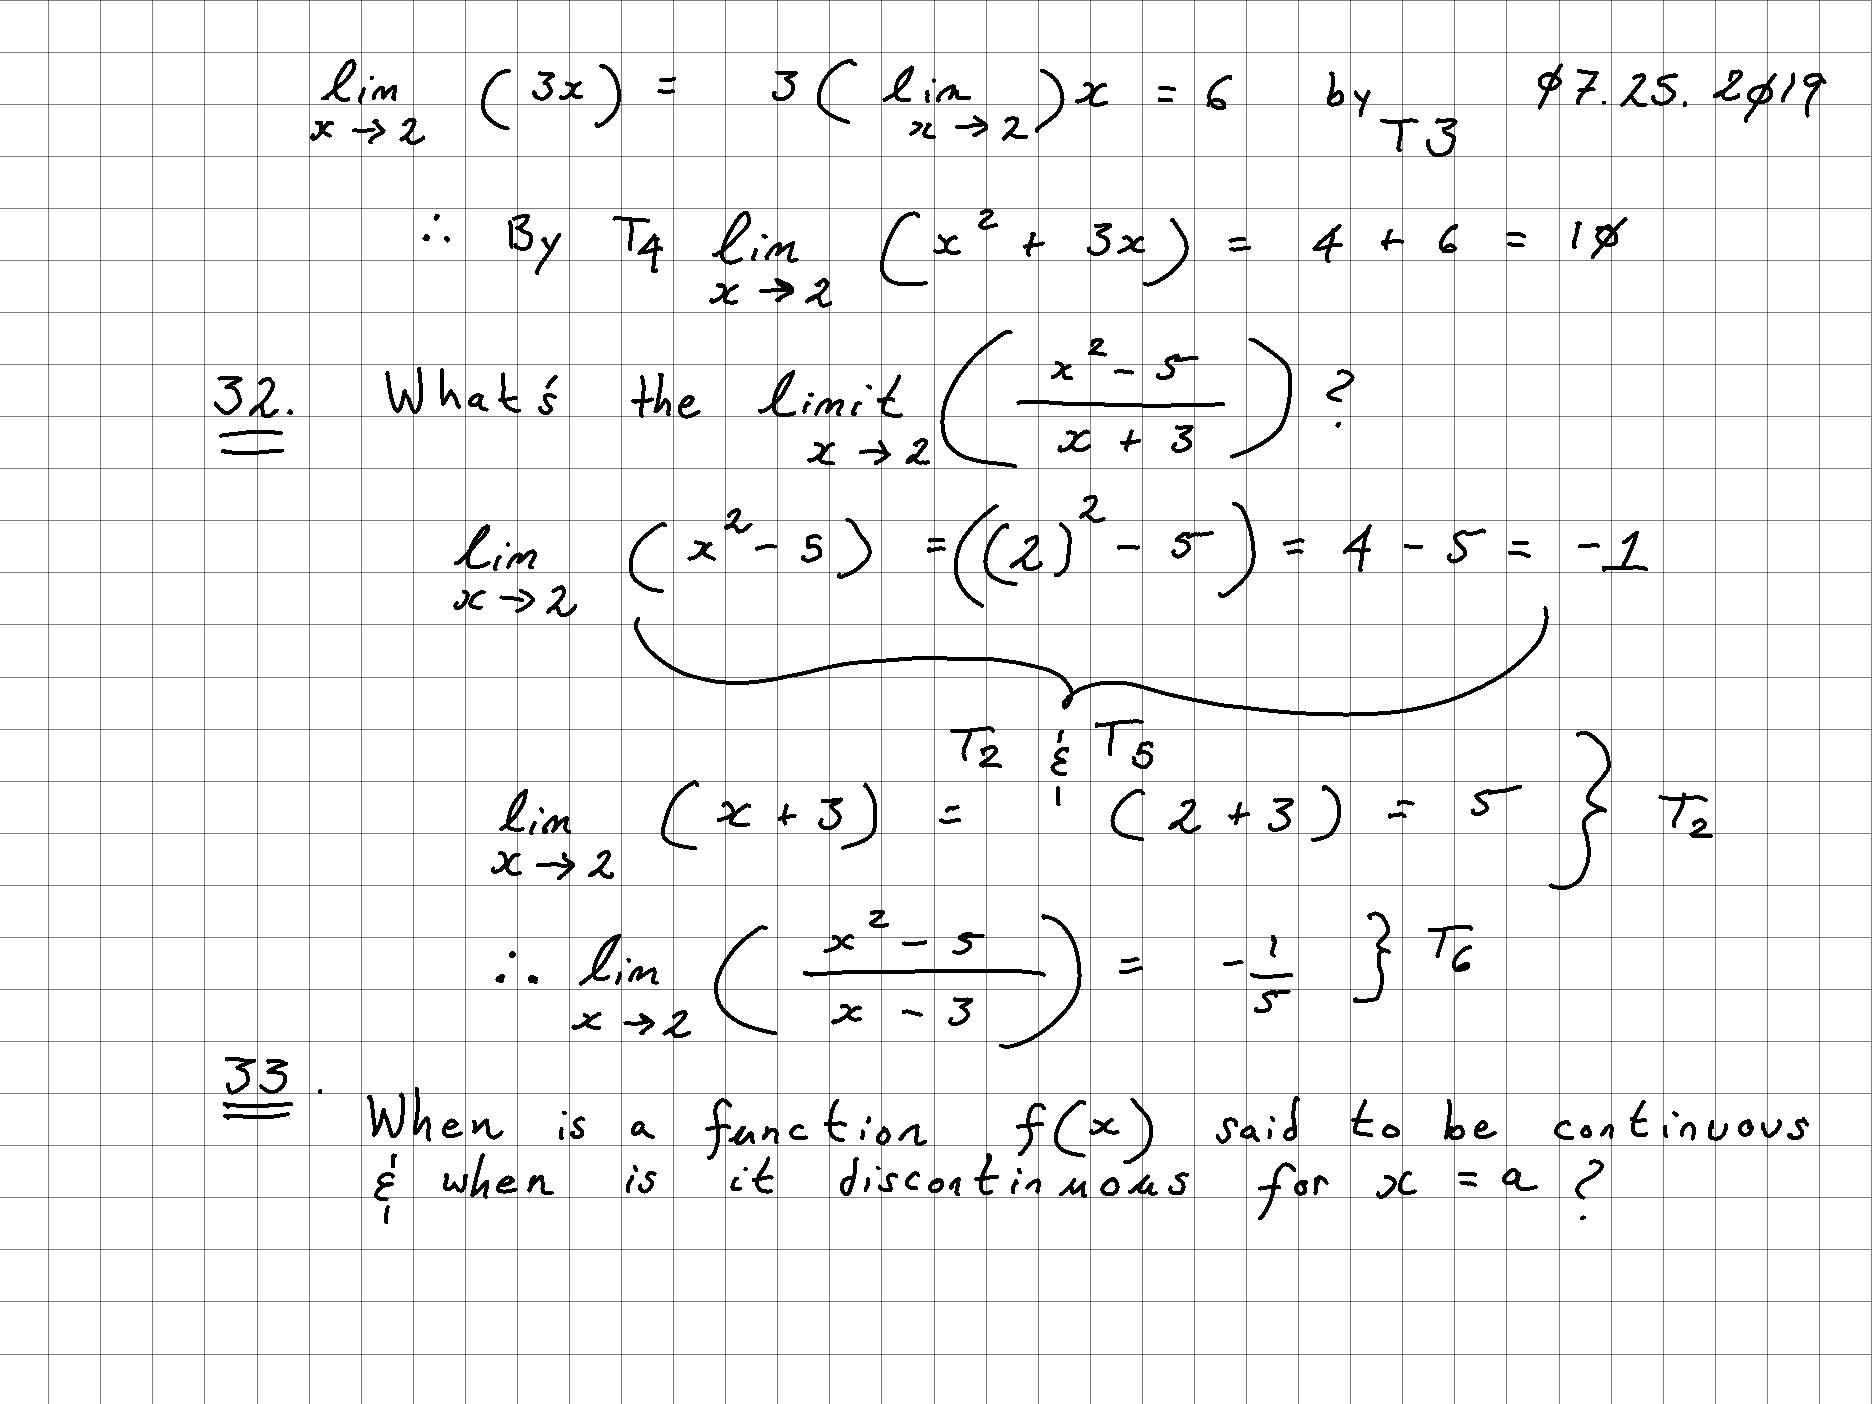 lim x→2 (3x) = 3(lim x→2)x = 6 by T3 07.25.2019
∴ By T4 lim x→2 (x² + 3x) = 4 + 6 = 10
32. What's the limit x→2 ((x² - 5)/(x + 3)) ?
lim x→2 (x² - 5) = ((2)² - 5) = 4 - 5 = -1
T2 & T5
lim x→2 (x + 3) = (2 + 3) = 5 } T2
∴ lim x→2 ((x² - 5)/(x - 3)) = -1/5 } T6
33. When is a function f(x) said to be continuous
& when is it discontinuous for x = a ?